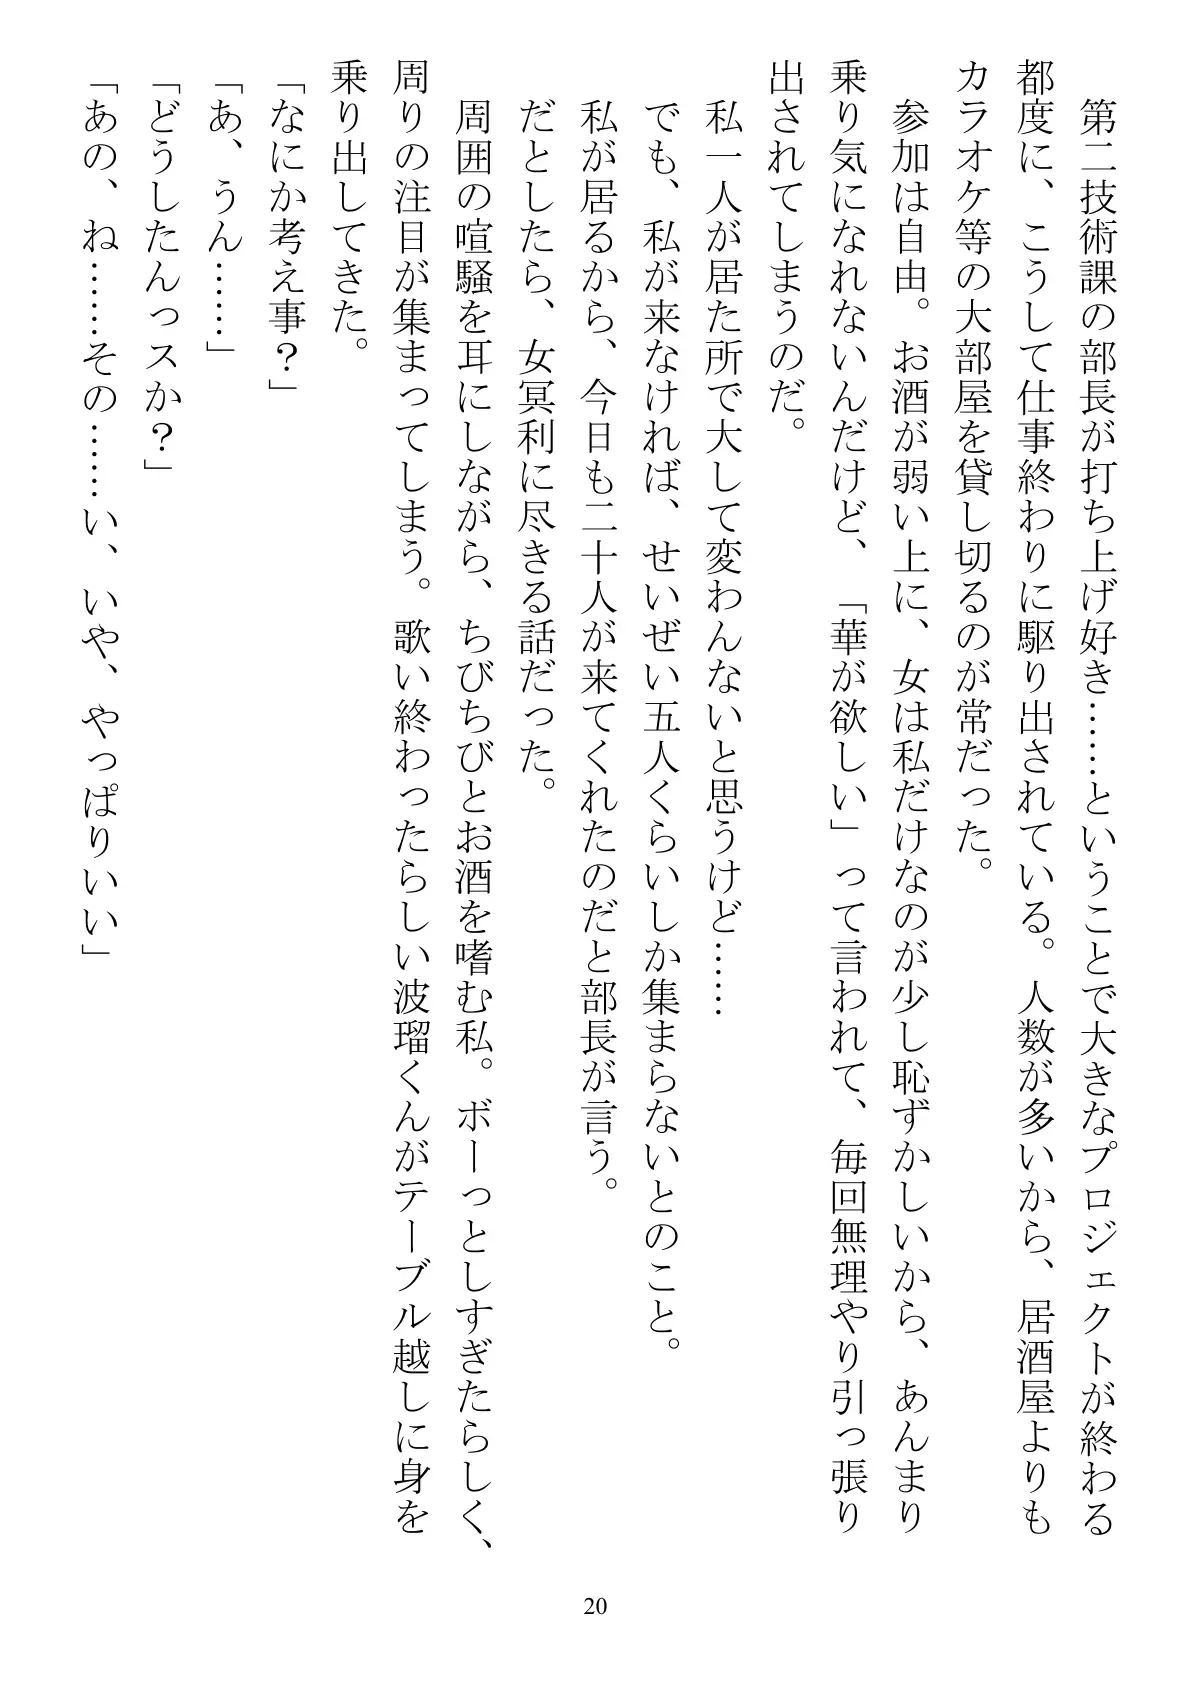 第二技術課の部長が打ち上げ好き……ということで大きなプロジェクトが終わる
都度に、こうして仕事終わりに駆り出されている。人数が多いから、居酒屋よりも
カラオケ等の大部屋を貸し切るのが常だった。
参加は自由。お酒が弱い上に、女は私だけなのが少し恥ずかしいから、あんまり
乗り気になれないんだけど、「華が欲しい」って言われて、毎回無理やり引っ張り
出されてしまうのだ。
私一人が居た所で大して変わんないと思うけど……
でも、私が来なければ、せいぜい五人くらいしか集まらないとのこと。
私が居るから、今日も二十人が来てくれたのだと部長が言う。
だとしたら、女冥利に尽きる話だった。
周囲の喧騒を耳にしながら、ちびちびとお酒を嗜む私。ボーっとしすぎたらしく、
周りの注目が集まってしまう。歌い終わったらしい波瑠くんがテーブル越しに身を
乗り出してきた。
「なにか考え事？」
「あ、うん……」
「どうしたんっスか？」
「あの、ね……その……い、いや、やっぱりいい」
20